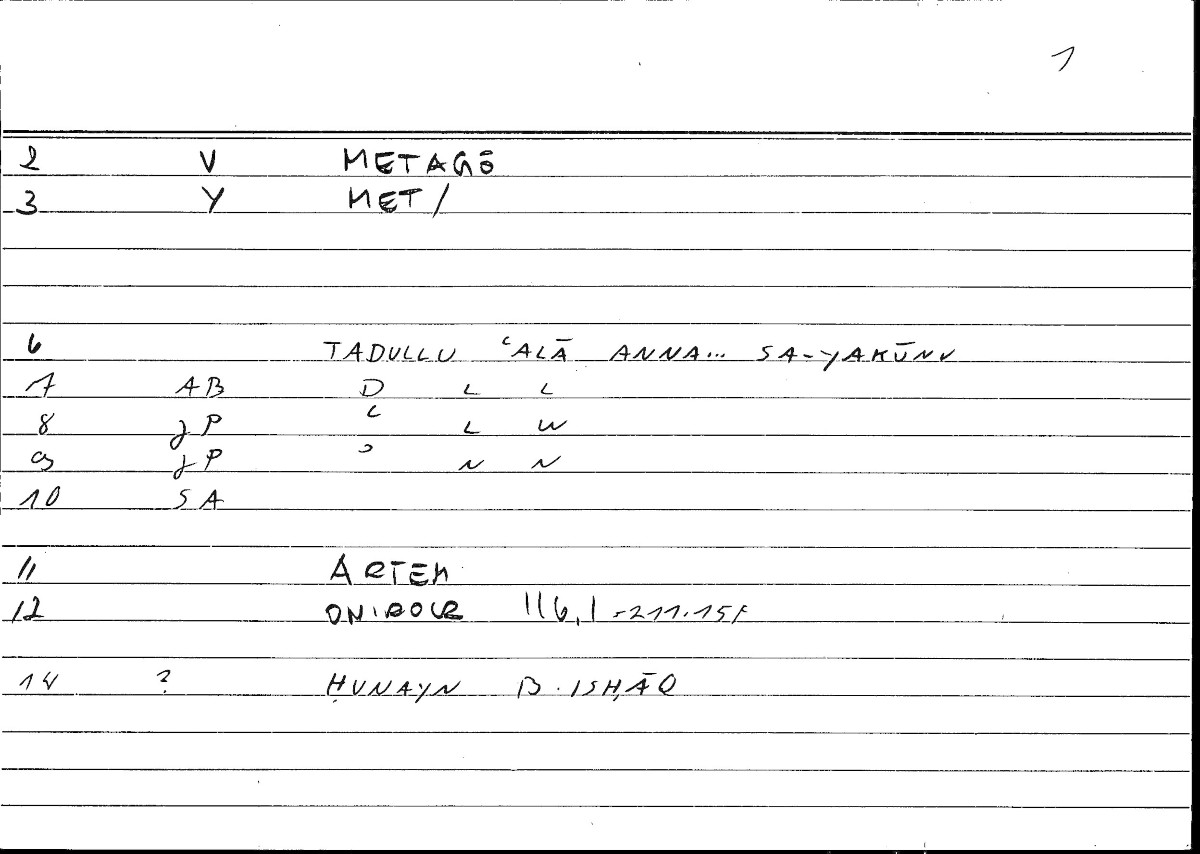 1
2 V METAGŌ
3 Y MET/
6 TADULLU ʿALĀ ANNA... SA-YAKŪNU
7 AB D L L
8 JP ʿ L W
9 JP ʾ N N
10 SA
11 ARTEM
12 ONIROCR 116,1 = 211.15f
14 ? ḤUNAYN B. ISḤĀQ